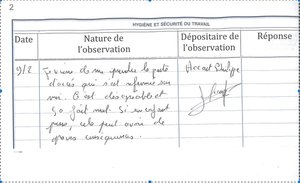 2
HYGIÈNE ET SÉCURITÉ DU TRAVAIL
Date
Nature de l'observation
Dépositaire de l'observation
Réponse
9/2
Je viens de me prendre la porte
d'accès qui s'est refermée sur
moi. C'est désagréable et
ça fait mal. Si un enfant
passe, cela peut avoir de
graves conséquences.